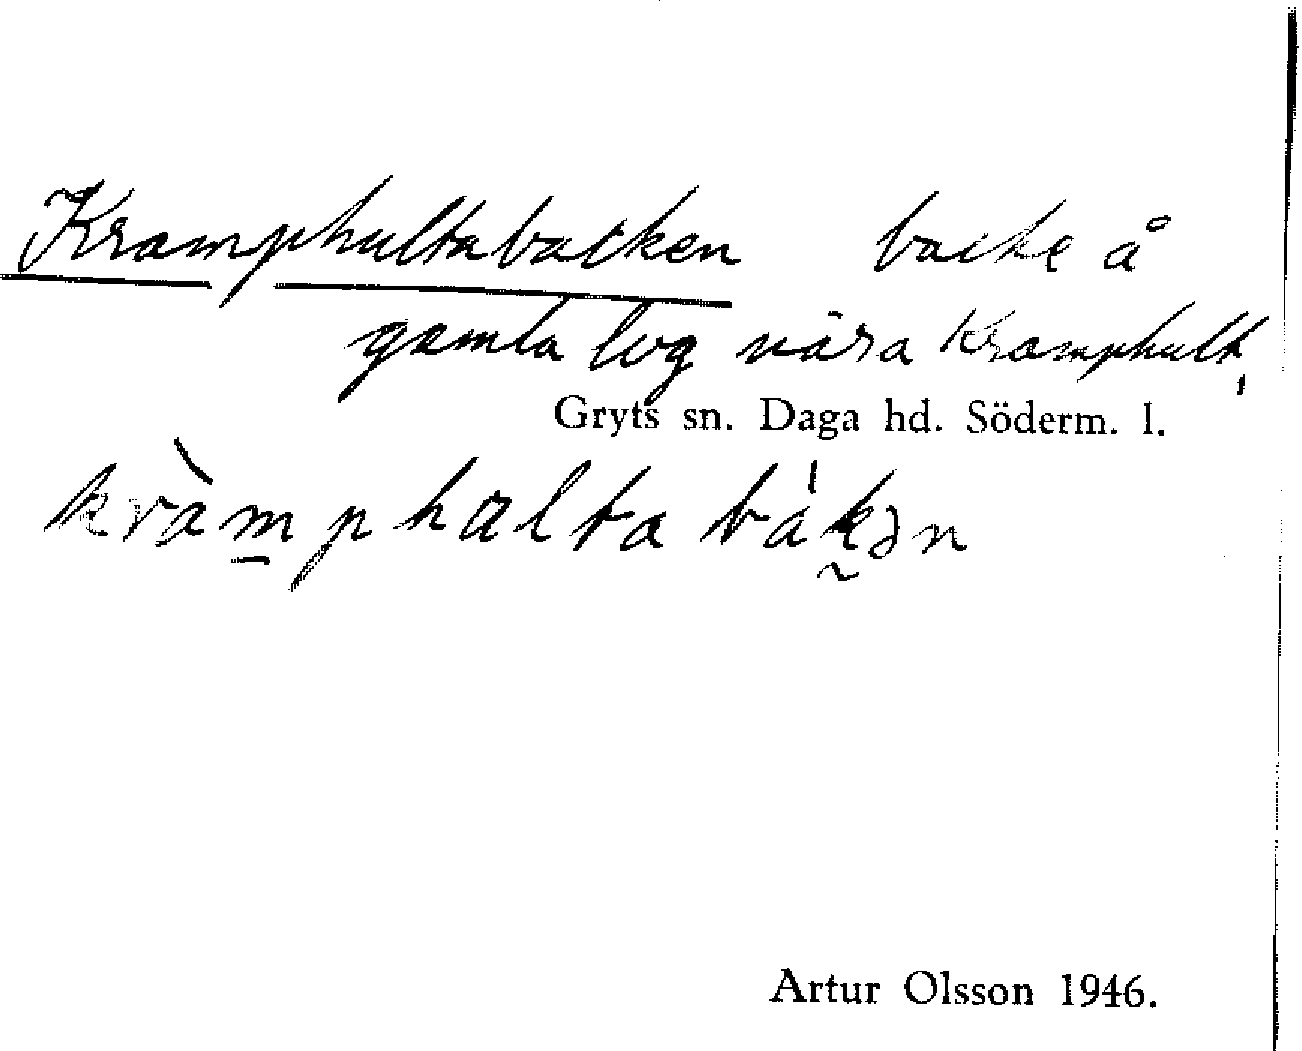 Kramphultabacken backe å
gamla lvg nära Kramphult,
Gryts sn. Daga hd. Söderm. l.
kràmphalta bákən
Artur Olsson 1946.